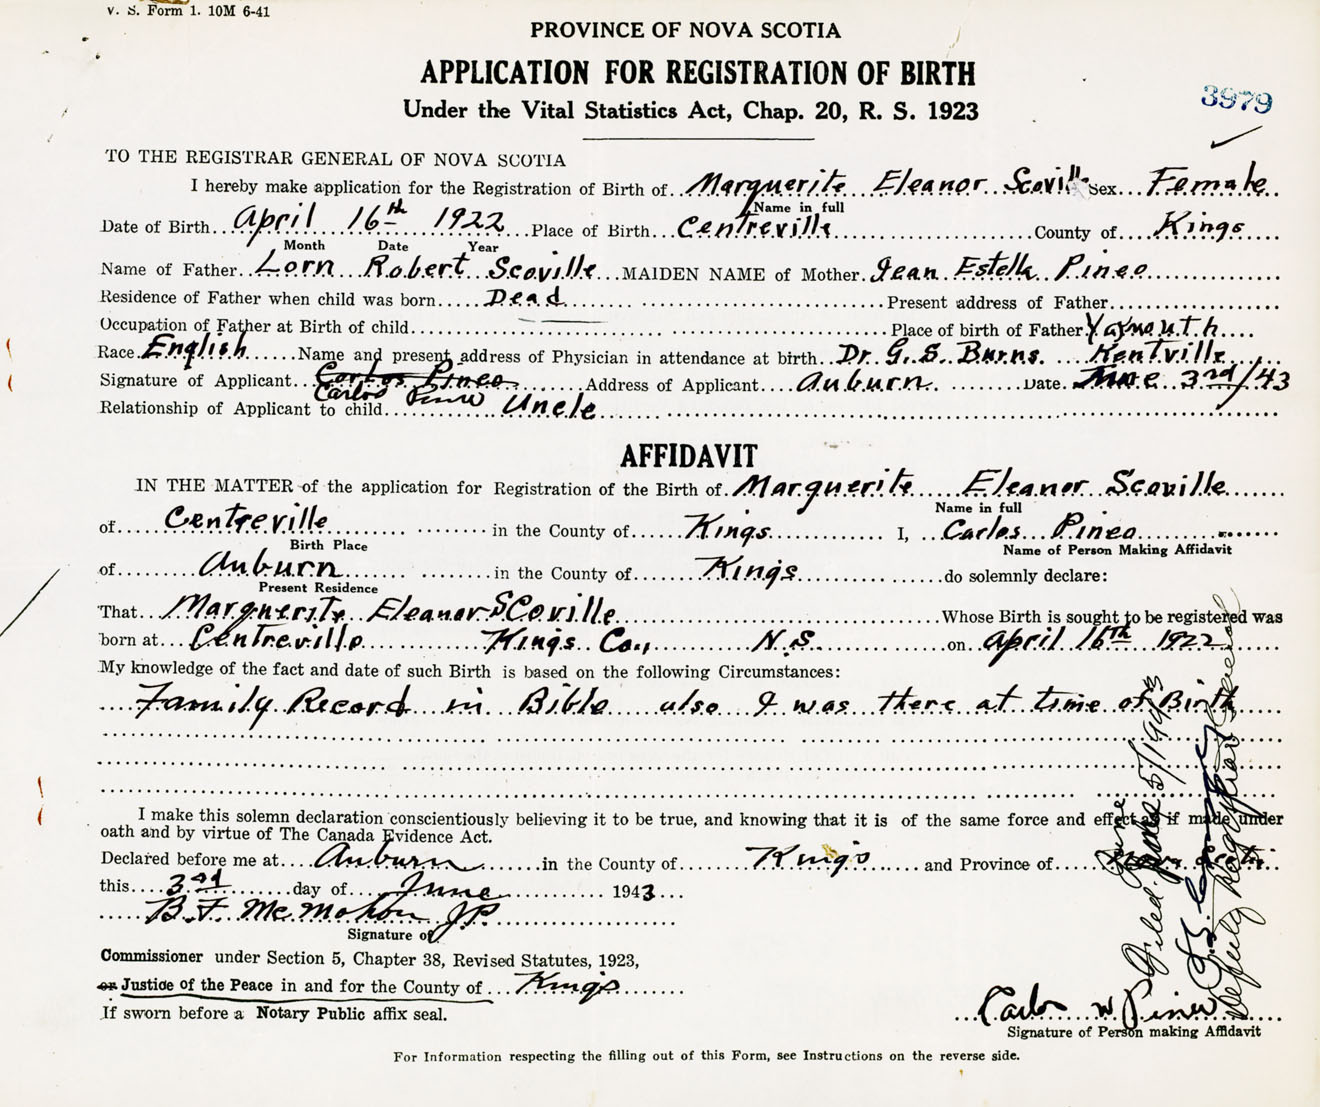 V. S. Form 1. 10M 6-41
PROVINCE OF NOVA SCOTIA
APPLICATION FOR REGISTRATION OF BIRTH
3979
Under the Vital Statistics Act, Chap. 20, R. S. 1923
TO THE REGISTRAR GENERAL OF NOVA SCOTIA
I hereby make application for the Registration of Birth of Marguerite Eleanor Scovill Sex Female
Name in full
Date of Birth April 16th 1922 Place of Birth Centreville County of Kings
Month Date Year
Name of Father Lorn Robert Scoville MAIDEN NAME of Mother Jean Estella Pineo
Residence of Father when child was born Dead Present address of Father
Occupation of Father at Birth of child Place of birth of Father Yarmouth
Race English Name and present address of Physician in attendance at birth Dr. G. S. Burns. Kentville
Signature of Applicant Carlos Pineo Address of Applicant Auburn. Date June 3rd/43
Carlos Pineo
Relationship of Applicant to child Uncle
AFFIDAVIT
IN THE MATTER of the application for Registration of the Birth of Marguerite Eleanor Scoville
Name in full
of Centreville in the County of Kings I, Carlos Pineo
Birth Place Name of Person Making Affidavit
of Auburn in the County of Kings do solemnly declare:
Present Residence
That Marguerite Eleanor Scoville Whose Birth is sought to be registered was
born at Centreville Kings Co., N.S. on April 16th 1922
My knowledge of the fact and date of such Birth is based on the following Circumstances:
Family Record in Bible also I was there at time of Birth
I make this solemn declaration conscientiously believing it to be true, and knowing that it is of the same force and effect as if made under
oath and by virtue of The Canada Evidence Act.
Declared before me at Auburn in the County of Kings and Province of Nova Scotia
this 3rd day of June 1943
B. F. McMahon J.P.
Signature of
Commissioner under Section 5, Chapter 38, Revised Statutes, 1923,
or Justice of the Peace in and for the County of Kings
If sworn before a Notary Public affix seal.
Carlos W Pineo
Signature of Person making Affidavit
For Information respecting the filling out of this Form, see Instructions on the reverse side.
Filed June 5/1943
Deputy Registrar General